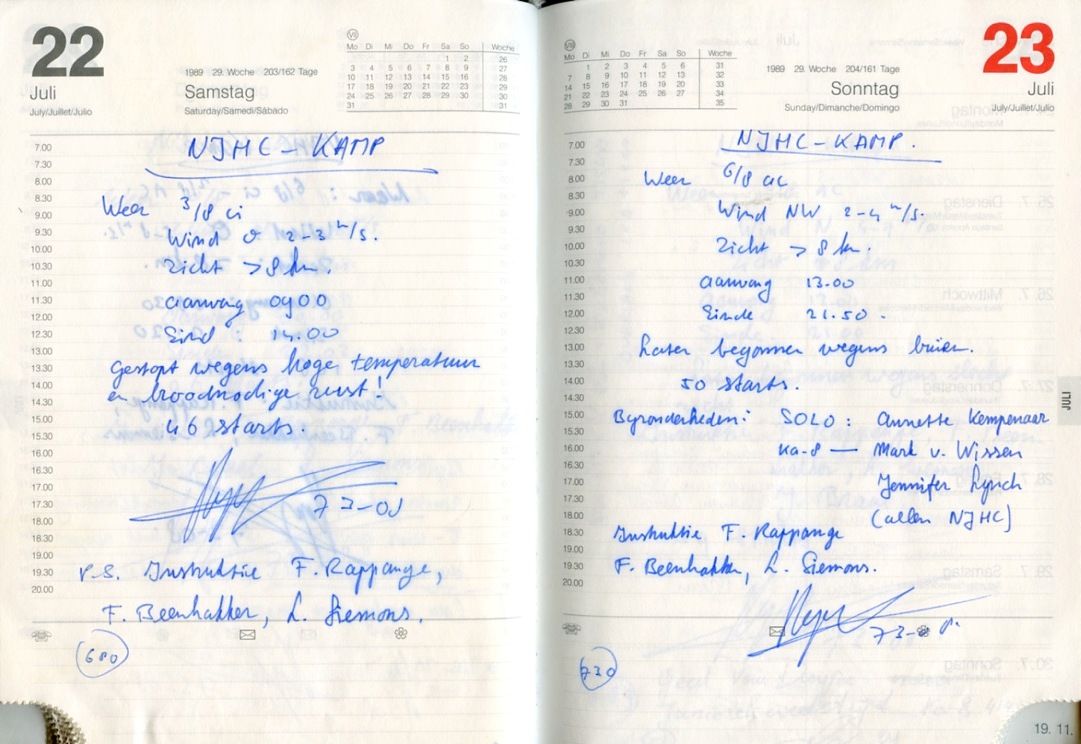 22
Juli
July/Juillet/Julio
1989 29. Woche 203/162 Tage
Samstag
Saturday/Samedi/Sábado
VII
Mo Di Mi Do Fr Sa So Woche
1 2 26
3 4 5 6 7 8 9 27
10 11 12 13 14 15 16 28
17 18 19 20 21 22 23 29
24 25 26 27 28 29 30 30
31 31
7.00
7.30
8.00
8.30
9.00
9.30
10.00
10.30
11.00
11.30
12.00
12.30
13.00
13.30
14.00
14.30
15.00
15.30
16.00
16.30
17.00
17.30
18.00
18.30
19.00
19.30
20.00
NJHC - KAMP
Weer 3/8 ci
Wind 2-3 m/s.
Zicht > 8 km.
aanvang 0900
Eind : 14.00
Gestopt wegens hoge temperatuur
en broodnodige rust!
46 starts.
P.S. Instruktie F. Rappange,
F. Beenhakker, L. Siemons.
680
VIII
Mo Di Mi Do Fr Sa So Woche
1 2 3 4 5 6 31
7 8 9 10 11 12 13 32
14 15 16 17 18 19 20 33
21 22 23 24 25 26 27 34
28 29 30 31 35
1989 29. Woche 204/161 Tage
Sonntag
Sunday/Dimanche/Domingo
23
Juli
July/Juillet/Julio
7.00
7.30
8.00
8.30
9.00
9.30
10.00
10.30
11.00
11.30
12.00
12.30
13.00
13.30
14.00
14.30
15.00
15.30
16.00
16.30
17.00
17.30
18.00
18.30
19.00
19.30
20.00
NJHC - KAMP.
Weer 6/8 ac
Wind NW 2-4 m/s.
Zicht > 8 km.
aanvang 13.00
Einde 21.50.
Later begonnen wegens buien.
50 starts.
Byzonderheden: SOLO : Annette Kempenaar
Ka-8 — Mark v. Wissen
Jennifer Lynch
(allen NJHC)
Instruktie F. Rappange
F. Beenhakker, L. Siemons.
730
JULI
19. 11.